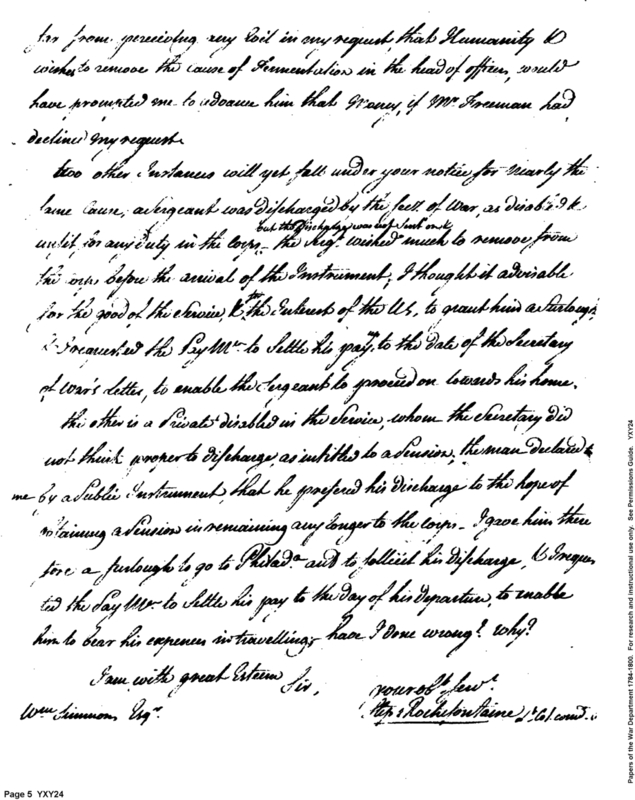 far from perceiving any Evil in my request, that Humanity &
wishes to remove the cause of Fermentation in the head of officers, would
have prompted me to advance him that Money, if Mr. Freeman had
declined my request.
two other Instances will yet fall under your notice for nearly the
same Cause, a Sergeant was discharged by the Secy. of War, as disabled &
unfit for any duty in the Corps - but the discharge was not sent on & the Sergt. wished much to remove from
the Corps before the arrival of the Instrument; I thought it advisable
for the good of the Service, & the Interest of the US, to grant him a furlough,
& I requested the Pay Mr. to Settle his pay, to the date of the Secretary
of War's Letter, to enable the Sergeant to proceed on towards his home.
the other is a Private disabled in the Service whom the Secretary did
not think proper to discharge, as intitled to a Pension, the man declared to
me by a Public Instrument, that he prefered his discharge to the hope of
obtaining a Pension in remaining any longer to the Corps - I gave him there
fore a furlough to go to Philada. and to sollicit his discharge, & I reques
ted the Pay Mr. to Settle his pay to the day of his departure, to enable
him to bear his expences in travelling; have I done wrong? Why?
I am with great Esteem
Sir,
your obt. Servt.
Wm Simmons Esqr.
Stepn Rochefontaine Lt. Col. comdt.
Page 5 YXY24
Papers of the War Department 1784-1800. For research and instructional use only. See Permissions Guide. YXY24